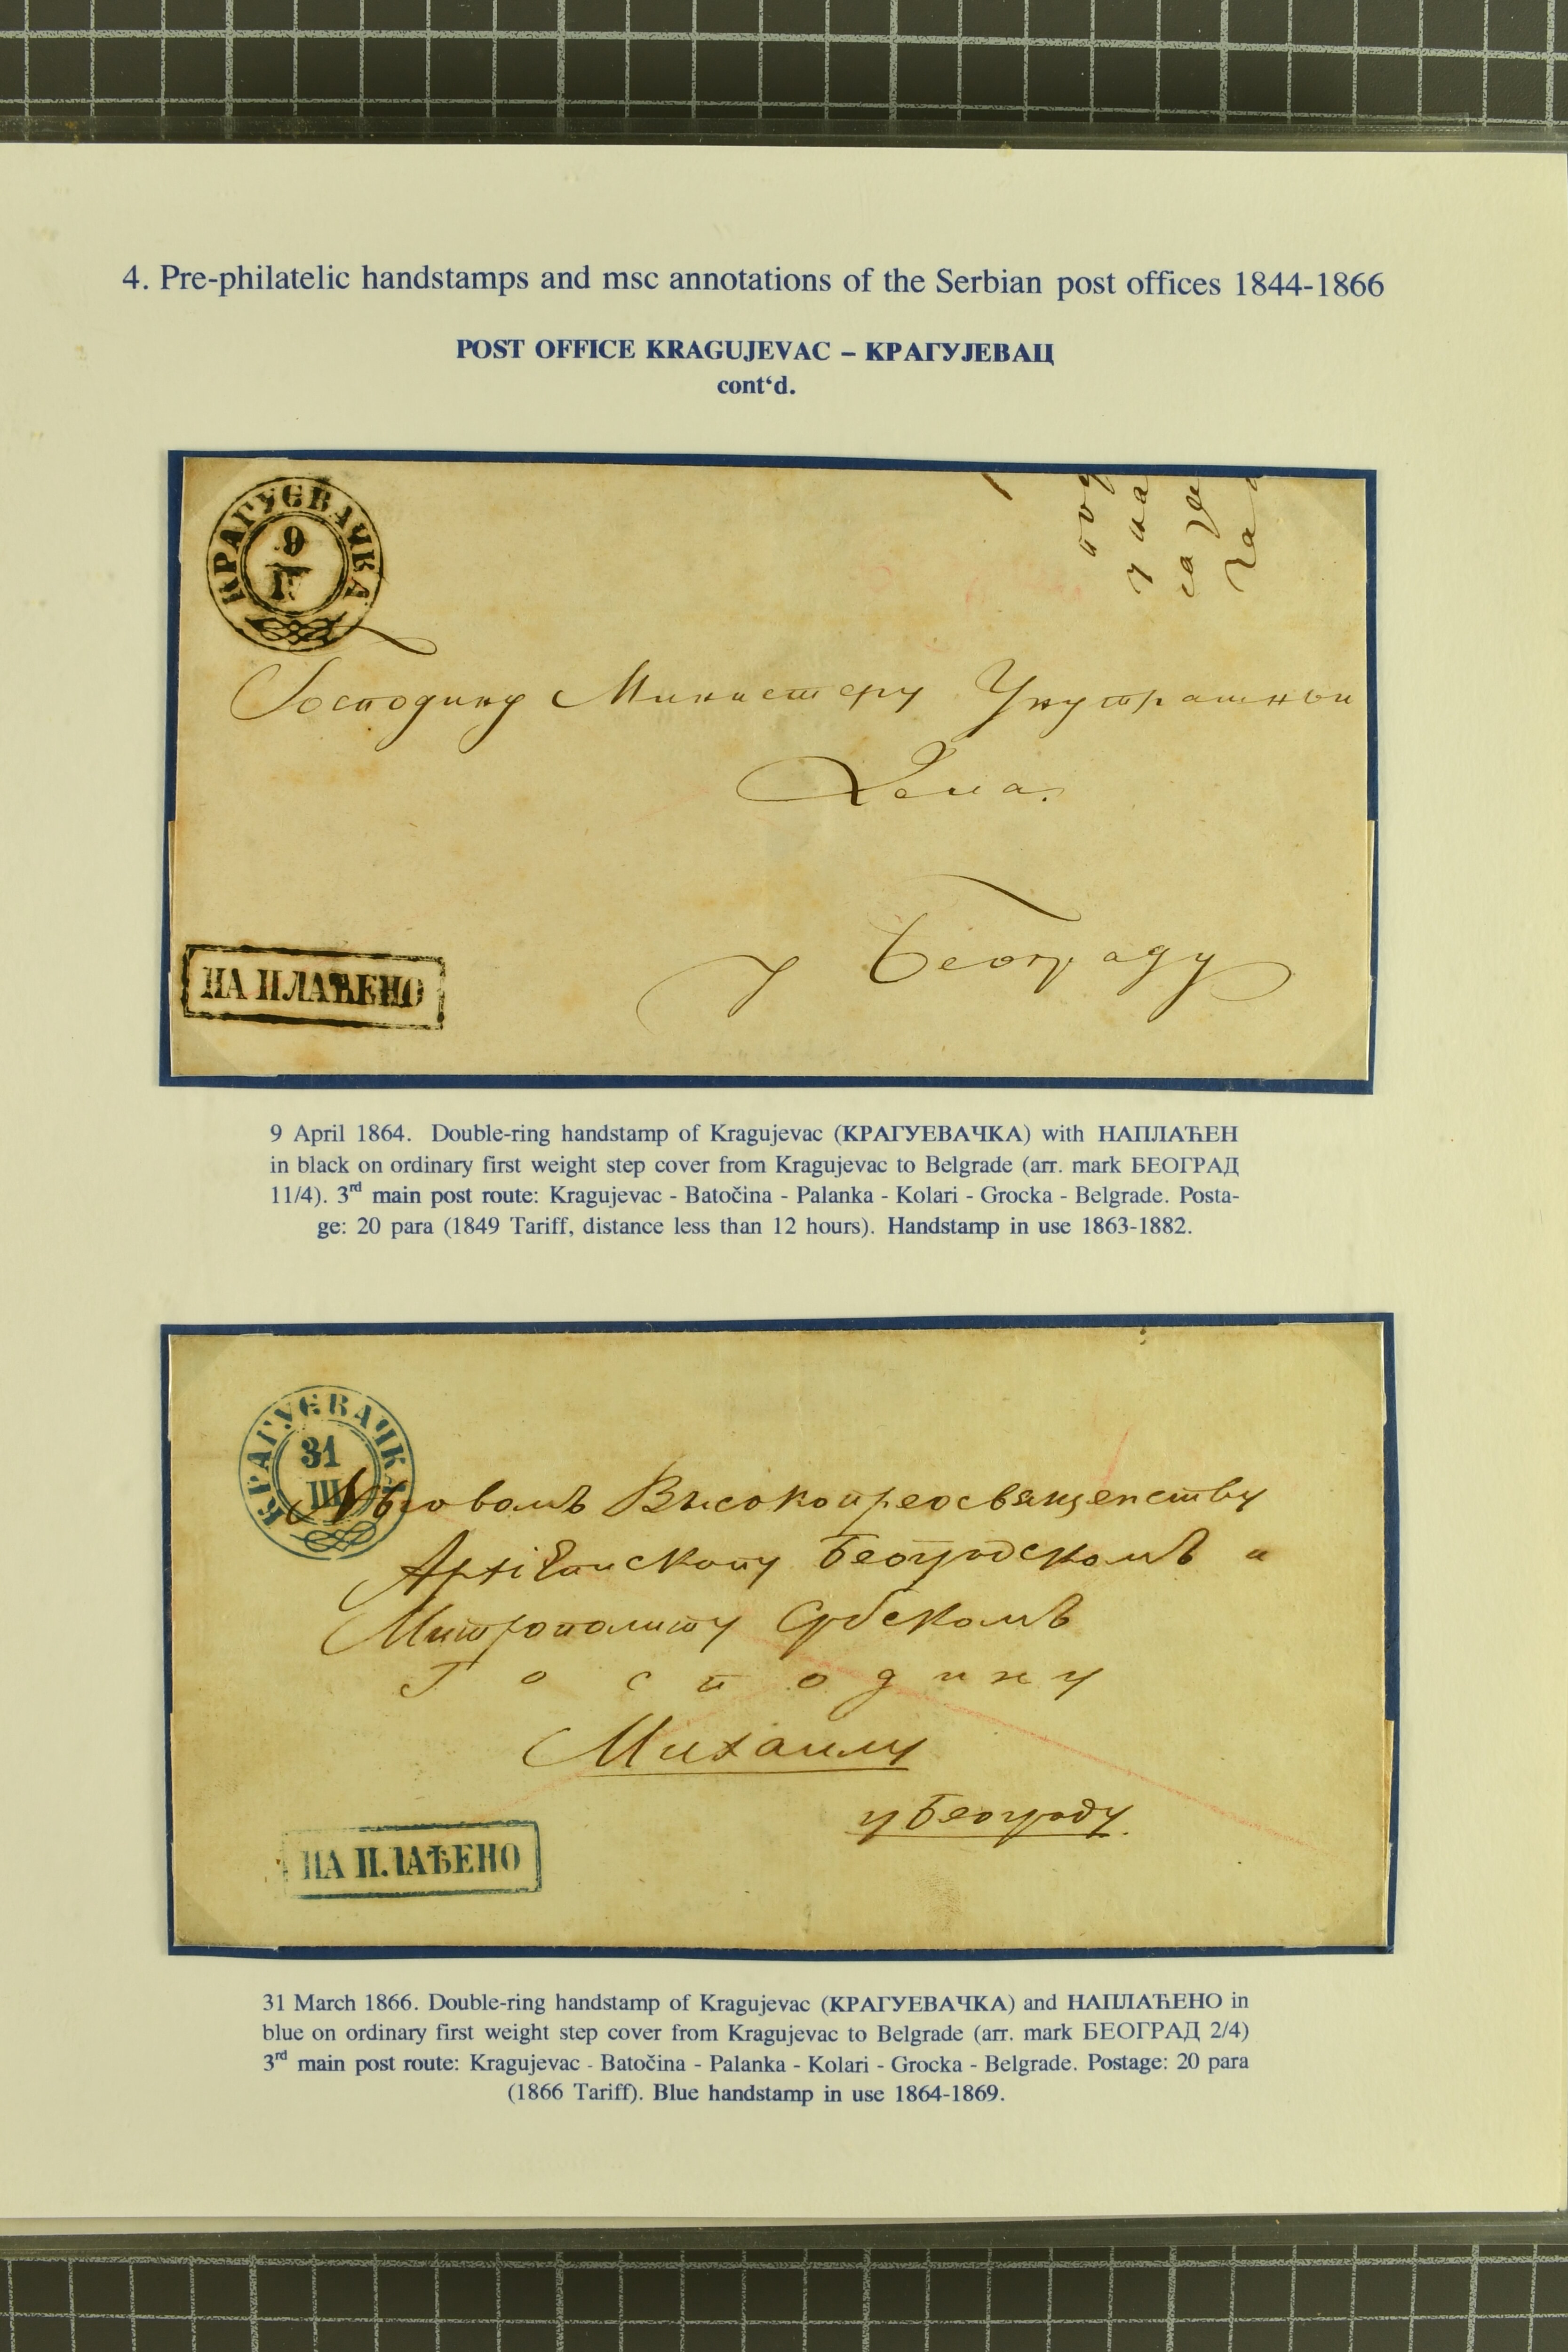 4. Pre-philatelic handstamps and msc annotations of the Serbian post offices 1844-1866
POST OFFICE KRAGUJEVAC – КРАГУЈЕВАЦ
cont‘d.
КРАГУЄВАЧКА
9
IV
Господину Министеру Унутрашньи
Дела.
у Београду
НА ПЛАЋЕНО
9 April 1864. Double-ring handstamp of Kragujevac (КРАГУЕВАЧКА) with НАПЛАЋЕН
in black on ordinary first weight step cover from Kragujevac to Belgrade (arr. mark БЕОГРАД
11/4). 3rd main post route: Kragujevac - Batočina - Palanka - Kolari - Grocka - Belgrade. Posta-
ge: 20 para (1849 Tariff, distance less than 12 hours). Handstamp in use 1863-1882.
КРАГУЄВАЧКА
31
III
Нѣговомъ Високопреосвященству
Архіепископу Београдскомъ и
Митрополиту Србскомъ
Господину
Михаилу
у Београду.
НА ПЛАЋЕНО
31 March 1866. Double-ring handstamp of Kragujevac (КРАГУЕВАЧКА) and НАПЛАЋЕНО in
blue on ordinary first weight step cover from Kragujevac to Belgrade (arr. mark БЕОГРАД 2/4)
3rd main post route: Kragujevac - Batočina - Palanka - Kolari - Grocka - Belgrade. Postage: 20 para
(1866 Tariff). Blue handstamp in use 1864-1869.